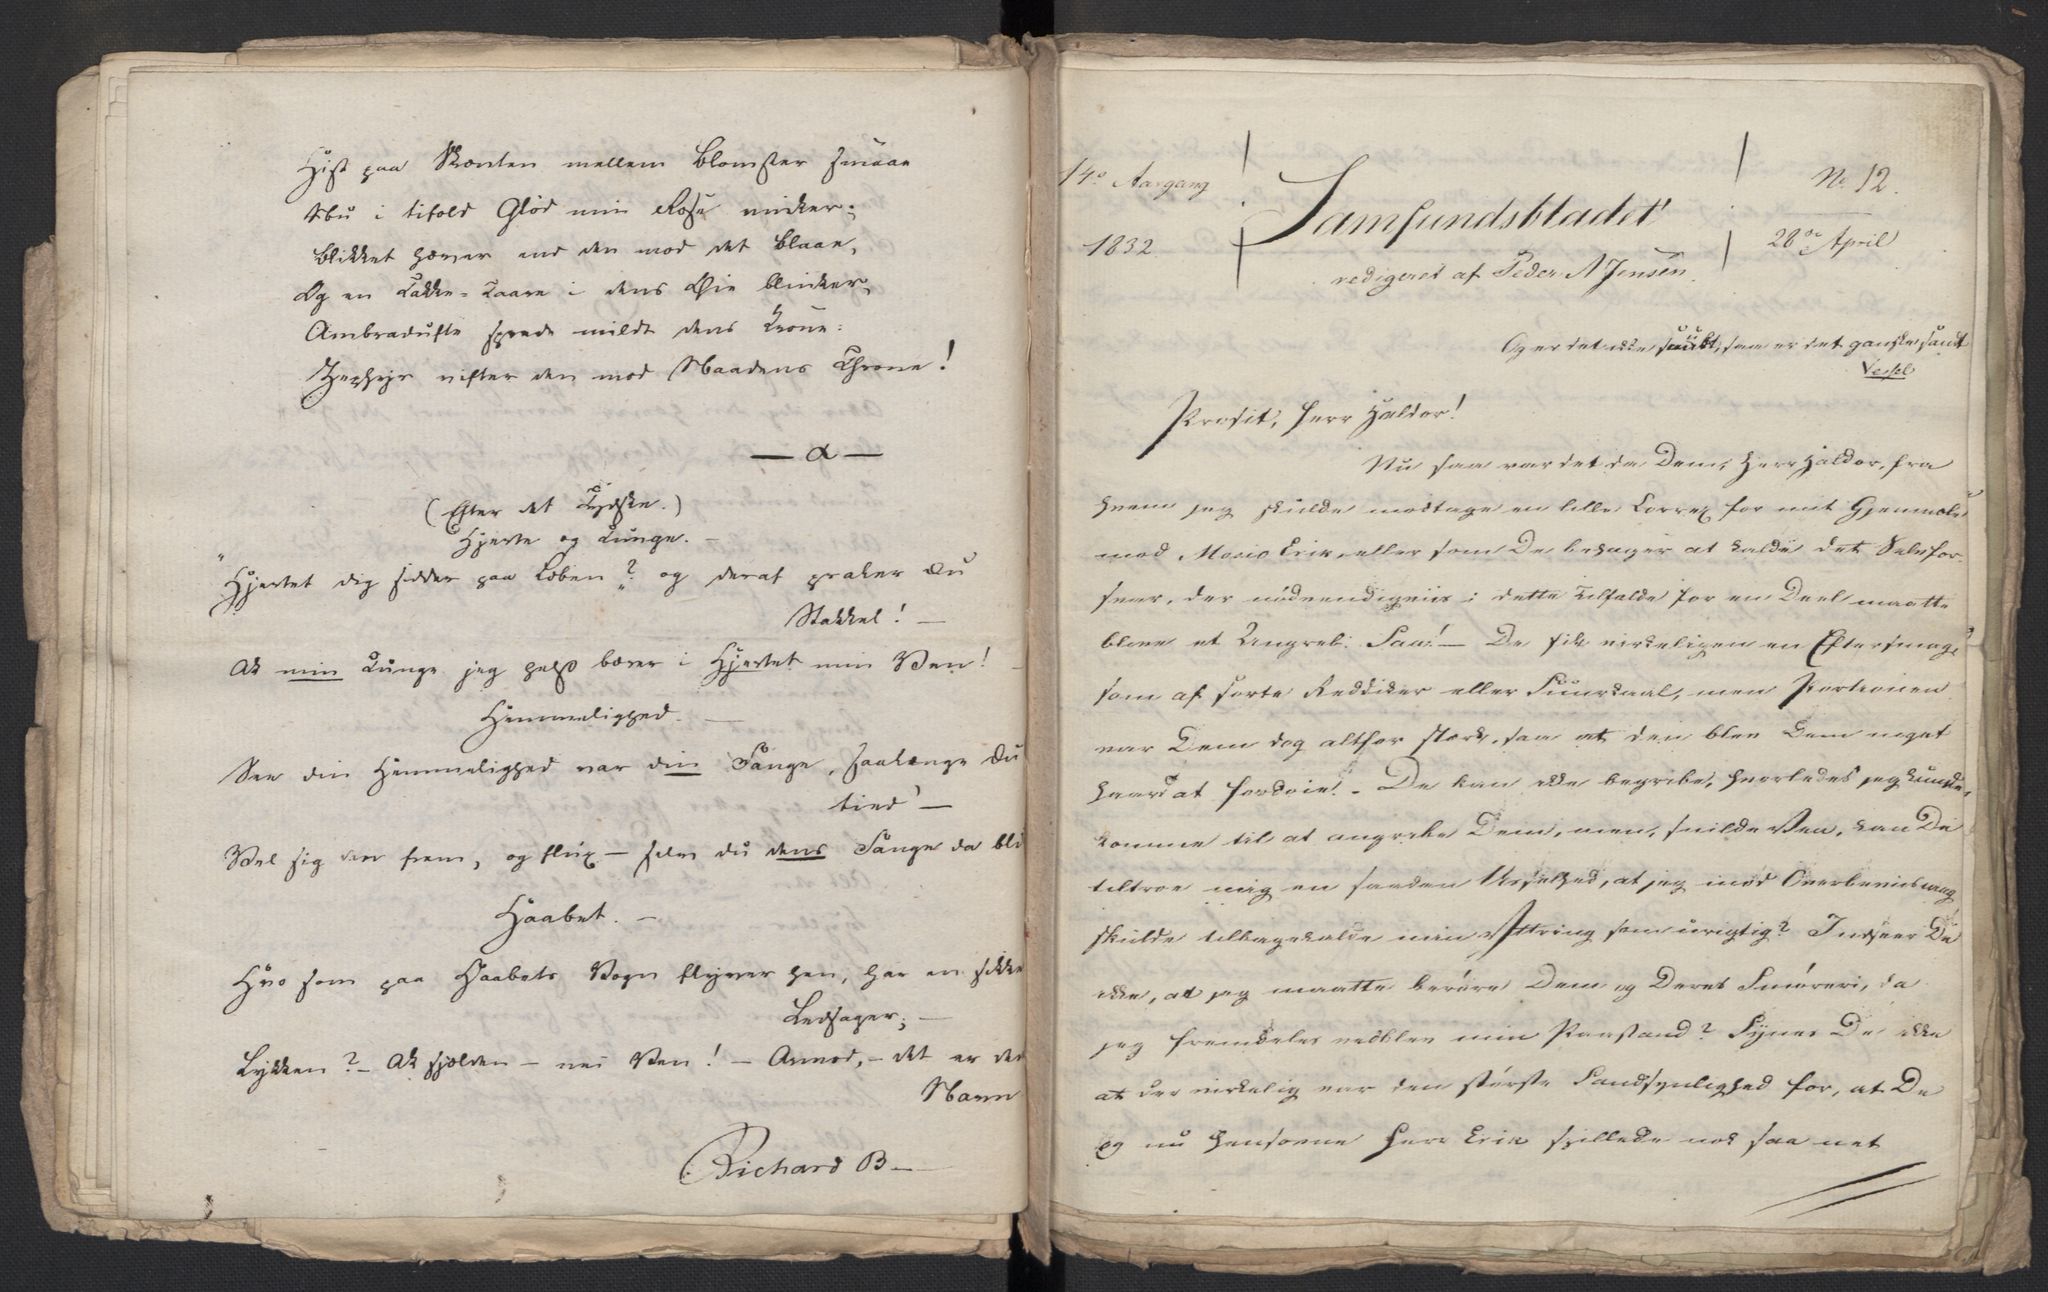 Hist paa Skrænten mellem Blomster smaae
Nu i tifold Glød min Rose vinker;
Blikket hæver end den mod det Blaae,
Og en Takke-Taare i dens Øie blinker,
Ambradufte sprede mildt dens Krone:
Zephyr vifter den mod Naadens Throne!
— α —
(Efter det Tydske.)
Hjerte og Tunge. —
"Hjertet dig sidder paa Læben"? og deraf praler Du
Stakkel! —
Ak min Tunge jeg helst bærer i Hjertet min Ven! —
Hemmelighed. —
See din Hemmelighed var din Fange, saalænge Du
tied' —
Vel siig den frem, og flux — selv du dens Fange da bli
Haabet. —
Hvo som paa Haabets Vogn flyver hen, har en sikke
Ledsager; —
Lykken? — Ak sjelden — nei Ven! — Armod, — det er det
Navn
Richard B —
14de Aargang
1832
Samfundsbladet
redigeret af Peder A Jensen.
No. 12.
28de April
Og er det ikke smukt, saa er det ganske sandt
Vessel
Prosit, Herr Haldor!
Nu saa var det da Dem, Herr Haldor, fra
hvem jeg skulde modtage en lille Correx for mit Gjenmæle
mod Mosio Erik, eller som De behager at kalde det Selvfor-
svar, der nødvendigviis i dette Tilfælde for en Deel maatte
blive et Angreb. Saa! — De fik virkeligen en Eftersmag
som af sorte Reddiker eller Suurkaal, men Portionen
var Dem dog altfor stærk, saa at den blev Dem noget
haard at fordøie. — De kan ikke begribe, hvorledes jeg kunde
komme til at angribe Dem, men, snilde Ven, kan De
tiltroe mig en saadan Usselhed, at jeg mod Overbeviisning
skulde tilbagekalde min Yttring som urigtig? Indseer De
ikke, at jeg maatte berøre Dem og Deres Smøreri, da
jeg fremdeles vedblev min Paastand? Synes De ikke
at der virkelig var den største Sandsynlighed for, at De
og nu hensovne Herr Erik spillede nok saa net